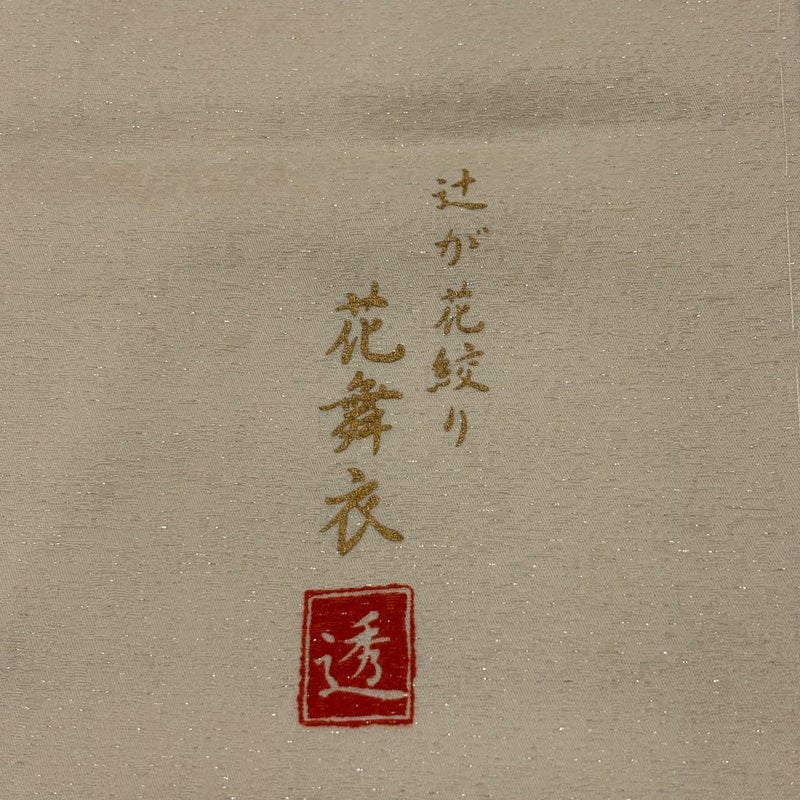 辻が花絞り
花舞衣
透